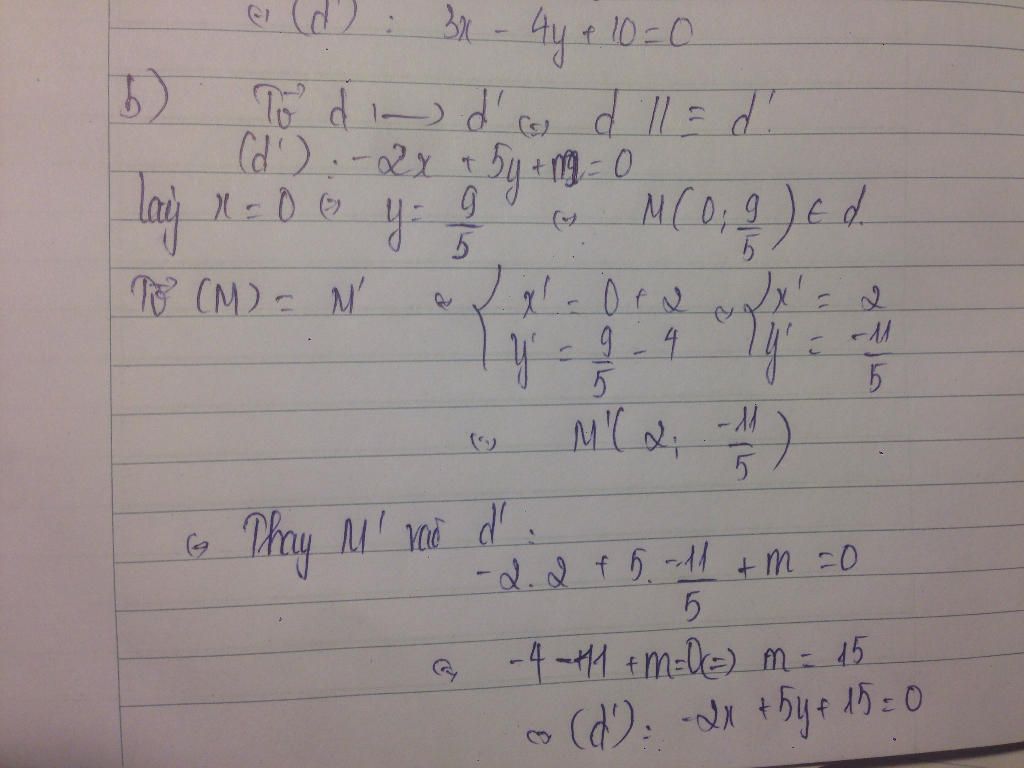 ⇔ (d') : 3x - 4y + 10 = 0
b) Tv⃗ d ⟼ d' ⇔ d // ≡ d'.
(d') : -2x + 5y + m = 0
Lấy x = 0 ⇔ y = 9/5 ⇔ M(0; 9/5) ∈ d.
Tv⃗ (M) = M' ⇔ { x' = 0 + 2 ; y' = 9/5 - 4 ⇔ { x' = 2 ; y' = -11/5
⇔ M'(2; -11/5)
⇔ Thay M' vào d' :
-2.2 + 5. -11/5 + m = 0
⇔ -4 - 11 + m = 0 (=) m = 15
⇔ (d') : -2x + 5y + 15 = 0